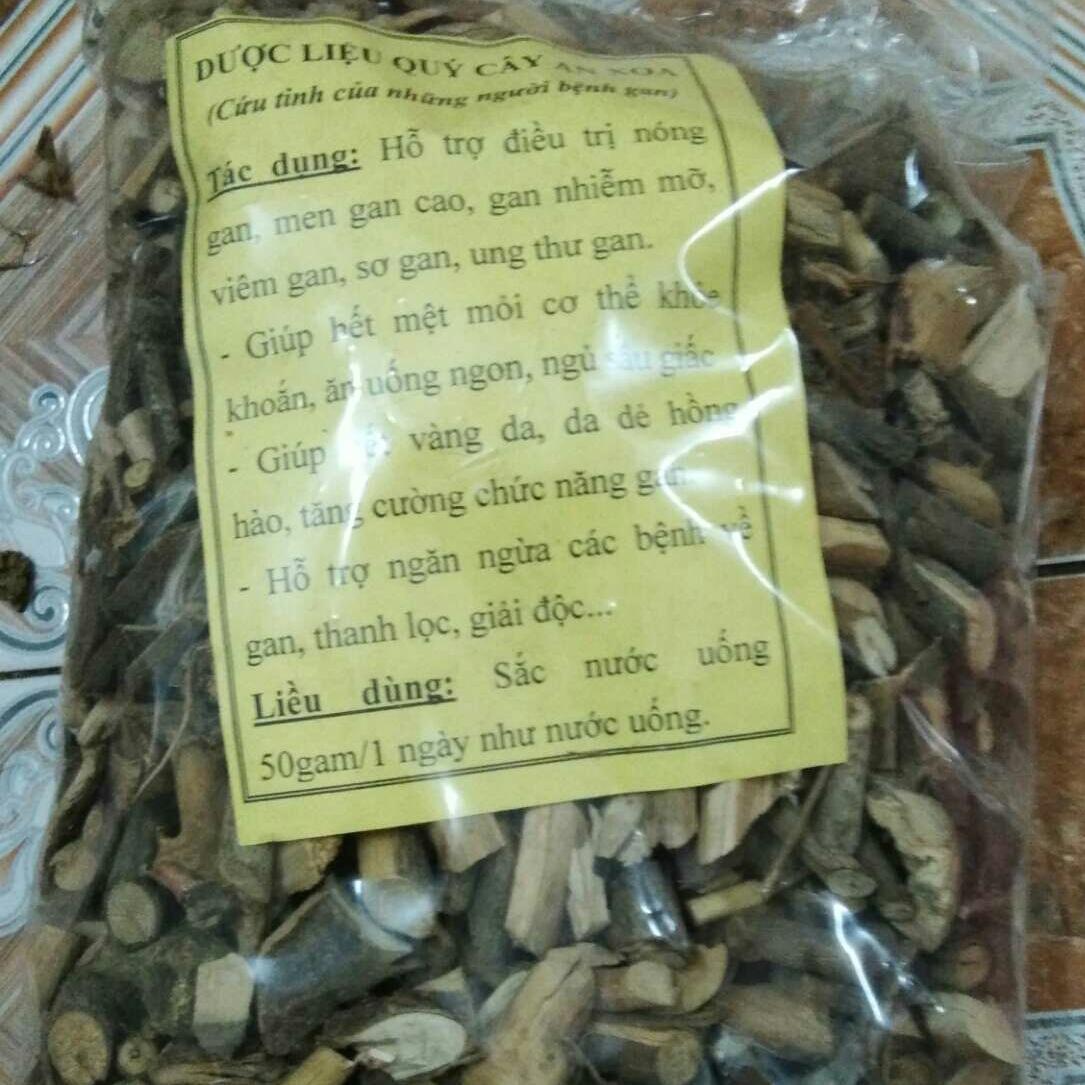 DƯỢC LIỆU QUÝ CÂY AN XOA
(Cứu tinh của những người bệnh gan)
Tác dụng: Hỗ trợ điều trị nóng
gan, men gan cao, gan nhiễm mỡ,
viêm gan, sơ gan, ung thư gan.
- Giúp hết mệt mỏi cơ thể khỏe
khoắn, ăn uống ngon, ngủ sâu giấc
- Giúp vàng da, da dẻ hồng
hào, tăng cường chức năng gan.
- Hỗ trợ ngăn ngừa các bệnh về
gan, thanh lọc, giải độc...
Liều dùng: Sắc nước uống
50gam/1 ngày như nước uống.